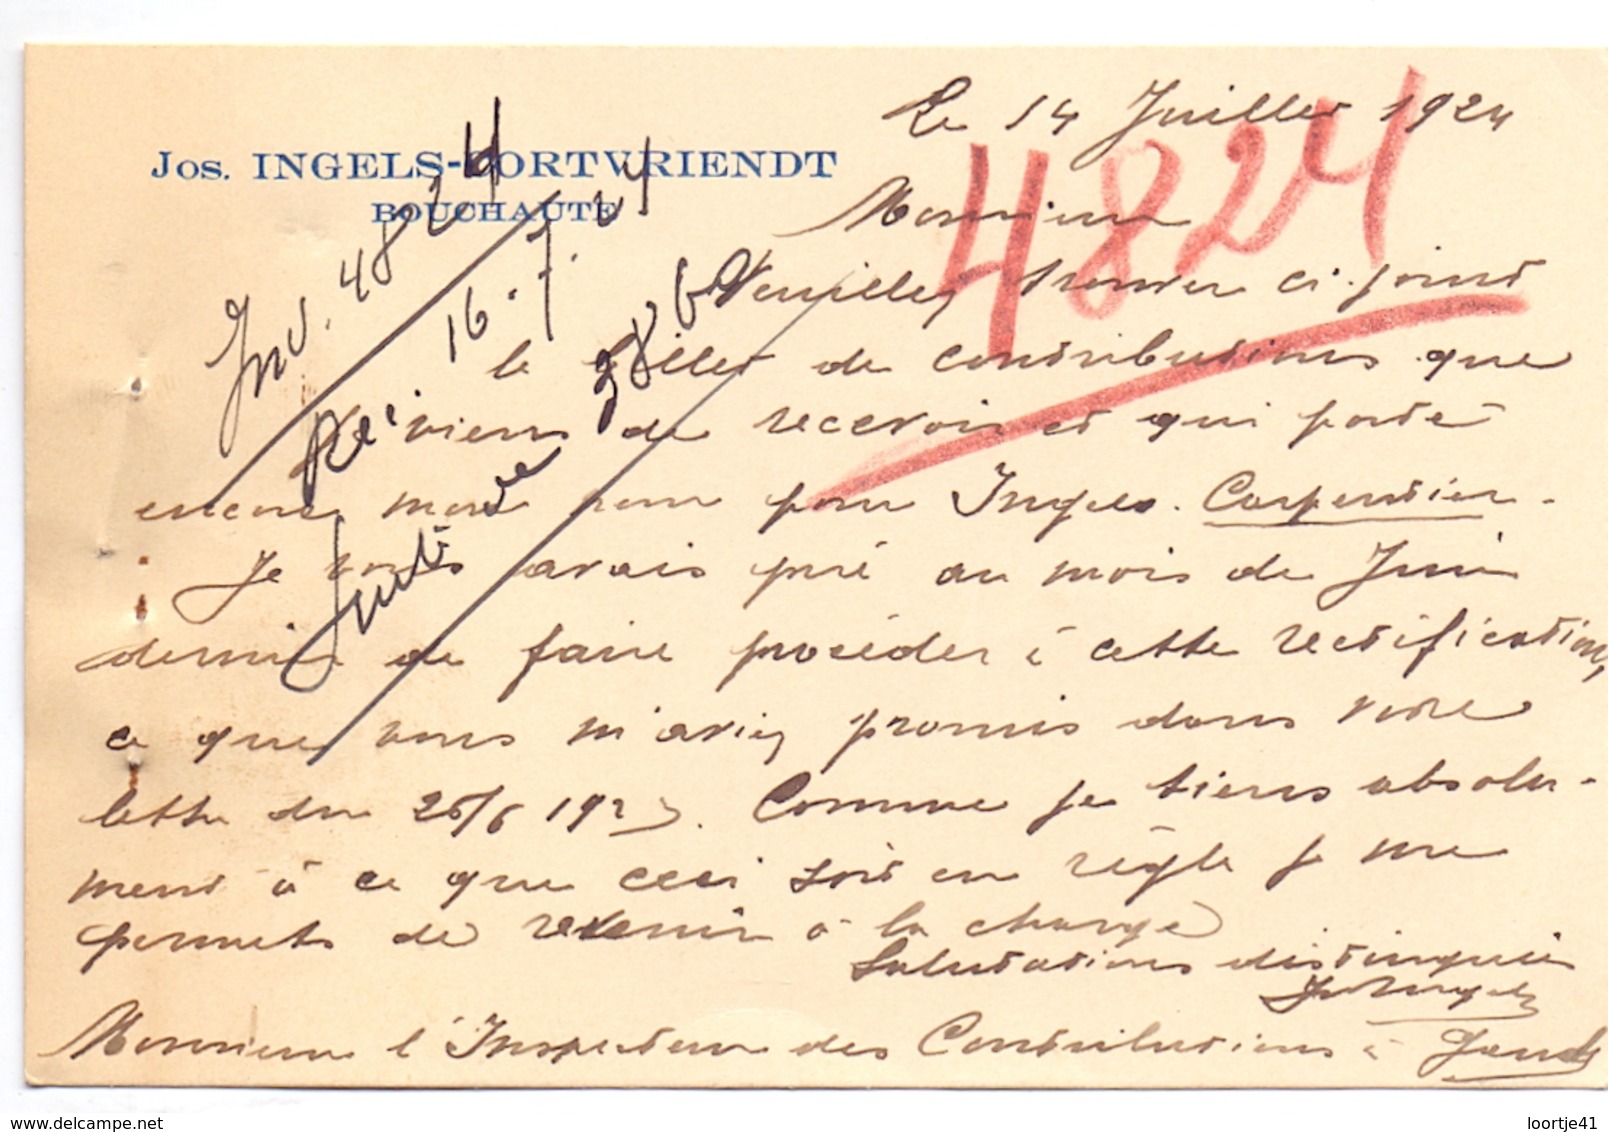 Le 14 Juillet 1924
Jos. INGELS-CORTVRIENDT
BOUCHAUTE
4824
Inv. 4824
16.7.24
Monsieur
Veuillez trouver ci-joint
le billet de contributions que
je viens de recevoir et qui porte
encore mon nom pour Ingels-Carpentier.
Je vous avais prié au mois de Juin
dernier de faire procéder à cette rectification,
ce que vous m'aviez promis dans votre
lettre du 26/6 1923. Comme je tiens absolu-
ment à ce que ceci soit en règle je me
permets de revenir à la charge
Salutations distinguées
Jos Ingels
Monsieur l'Inspecteur des Contributions à Gand
www.delcampe.net
loortje41